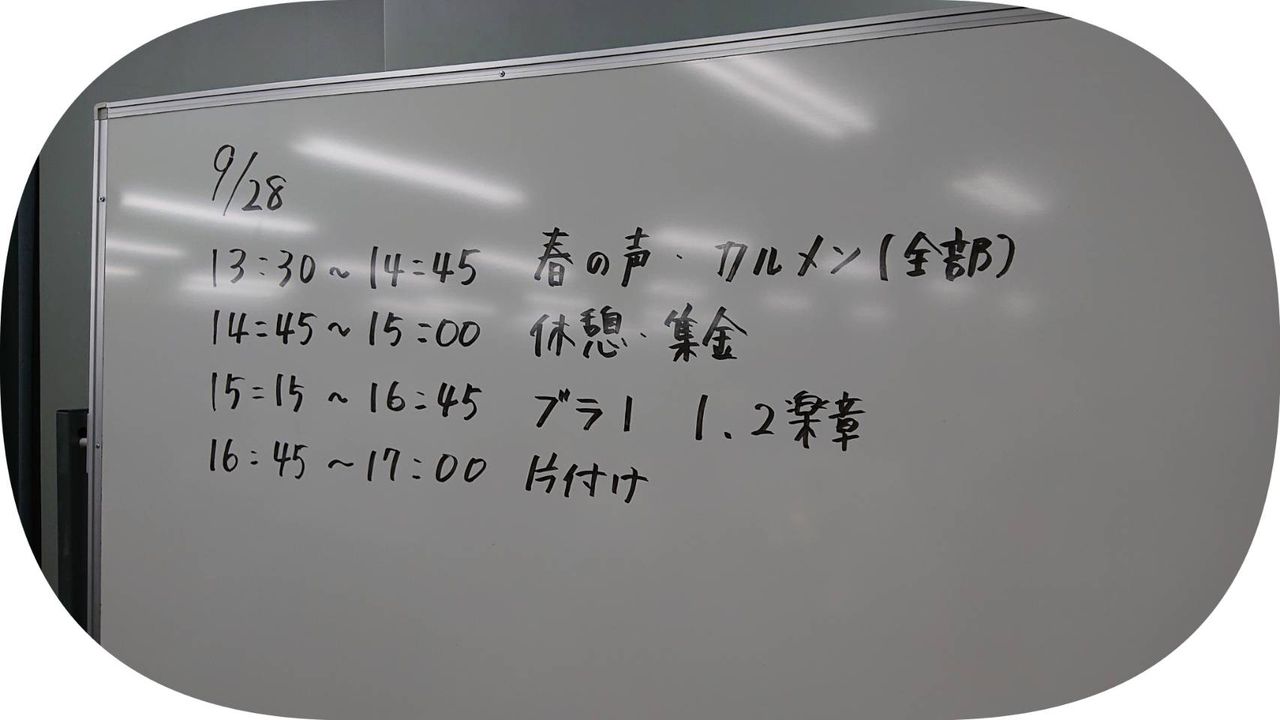 9/28
13:30~14:45 春の声・カルメン(全部)
14:45~15:00 休憩・集金
15:15~16:45 ブラ1 1、2楽章
16:45~17:00 片付け